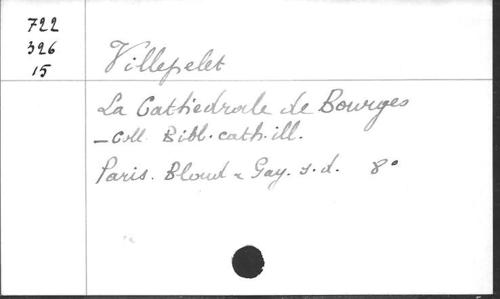 722
326
15
Villepelet
La Cathédrale de Bourges
- Coll. Bibl. cath. ill.
Paris. Bloud & Gay. s.d. 8°